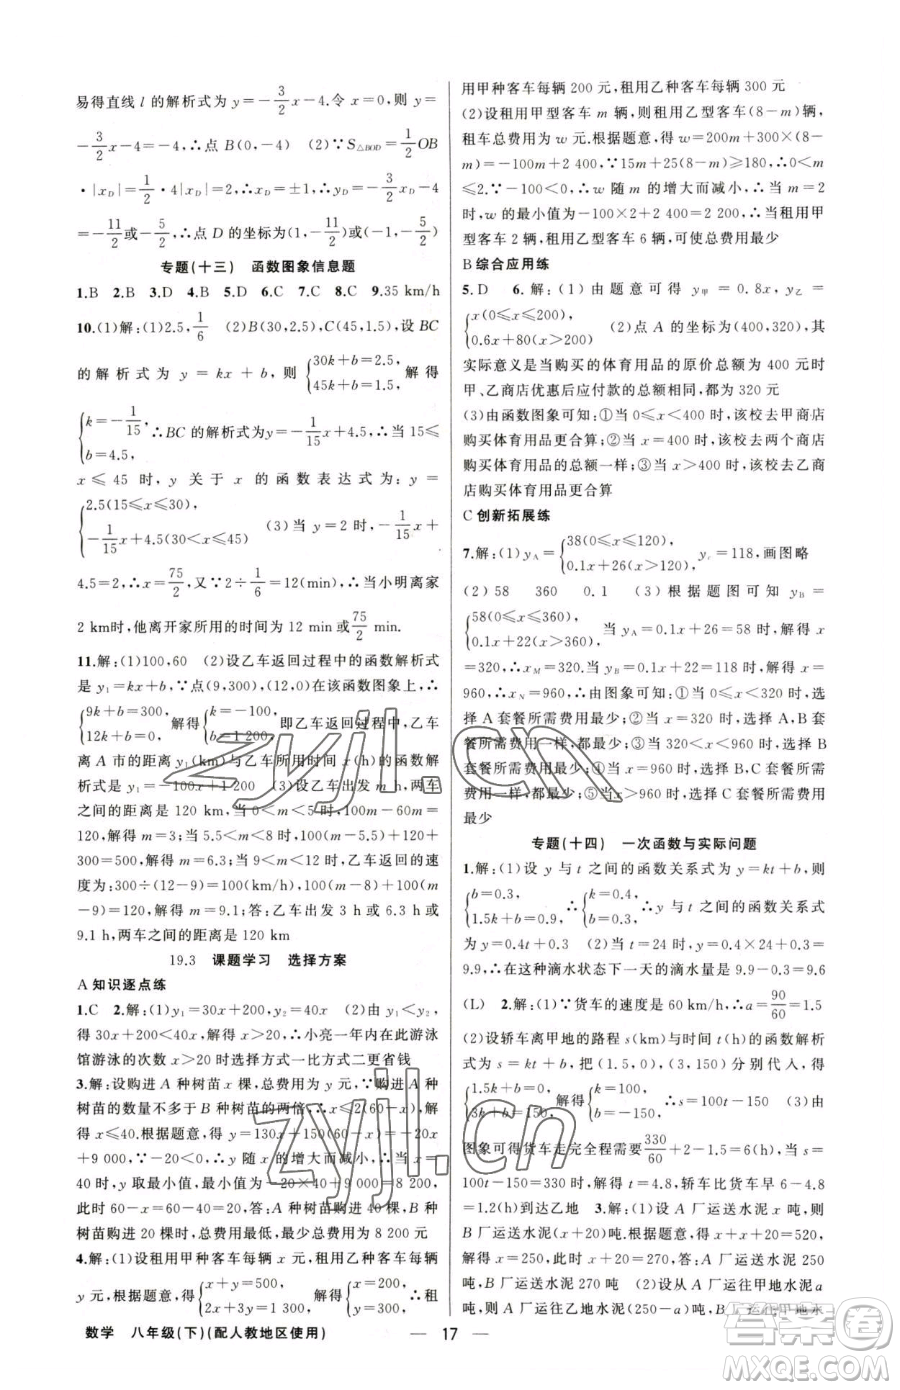 易得直线 l 的解析式为 y=-3/2x-4.令 x=0,则 y=
-3/2x-4=-4,∴点 B(0,-4) (2)∵S△BOD=1/2OB
·|xD|=1/2·4|xD|=2,∴xD=±1,∴yD=-3/2xD-4
=-11/2或-5/2,∴点 D 的坐标为(1,-11/2)或(-1,-5/2)
专题(十三) 函数图象信息题
1.B 2.B 3.D 4.B 5.D 6.C 7.C 8.C 9.35 km/h
10.(1)解:(1)2.5,1/6 (2)B(30,2.5),C(45,1.5),设 BC
的解析式为 y=kx+b,则 {30k+b=2.5, 45k+b=1.5, 解得
{k=-1/15, b=4.5, ∴BC 的解析式为 y=-1/15x+4.5,∴当 15≤
x≤45 时,y 关于 x 的函数表达式为:y=
{2.5(15≤x≤30), -1/15x+4.5(30<x≤45) (3)当 y=2 时,-1/15x+
4.5=2,∴x=75/2,又∵2÷1/6=12(min),∴当小明离家
2 km时,他离开家所用的时间为 12 min或75/2 min.
11.解:(1)100,60 (2)设乙车返回过程中的函数解析式
是 y1=kx+b,∵点(9,300),(12,0)在该函数图象上,∴
{9k+b=300, 12k+b=0, 解得{k=-100, b=1 200, 即乙车返回过程中,乙车
离 A 市的距离 y1(km)与乙车所用时间 x(h)的函数解
析式是 y1=-100x+1 200 (3)设乙车出发 m h时,两车
之间的距离是 120 km,当 0<m<5 时,100m-60m=
120,解得 m=3;当 5.5<m<8 时,100(m-5.5)+120+
60m=300,解得 m=6.3;当 9<m<12 时,乙车返回的速度为:
300÷(12-9)=100(km/h),则 100(m-8)+100(m
-9)=120,解得 m=9.1;答:乙车出发 3 h 或 6.3 h或
9.1 h,两车之间的距离是 120 km
19.3 课题学习 选择方案
A 知识逐点练
1.C 2.解:(1)y1=30x+200,y2=40x (2)由 y1<y2,
得 30x+200<40x,解得 x>20,∴小亮一年内在此游泳
馆游泳的次数 x>20 时选择方式一比方式二更省钱
3.解:设购进 A 种树苗 x 棵,总费用为 y 元,∵购进 A 种
树苗的数量不多于 B 种树苗的两倍,∴x≤2(60-x),解
得 x≤40.根据题意,得 y=130x+150(60-x)=-20x
+9 000,∵-20<0,∴y 随 x 的增大而减小,∴当 x=
40 时,y 取最小值,最小值为-20×40+9 000=8 200,此
时 60-x=60-40=20.答:当购买 A 种树苗进 40 棵,B
种树苗购进 20 棵时,总费用最少,最少费用为 8 200 元
4.解:(1)设租用甲种客车每辆 x 元,租用乙种客车每辆
y 元,根据题意,得{x+y=500, 2x+3y=1 300, 解得{x=200, y=300, 答:租
数学 八年级(下)(配人教地区使用)
用甲种客车每辆 200 元,租用乙种客车每辆 300 元
(2)设租用甲型客车 m 辆,则租用乙型客车(8-m)辆,
租车总费用为 w 元.根据题意,得 w=200m+300×(8-
m)=-100m+2 400,∵15m+25(8-m)≥180,∴m
≤2.∵-100<0,∴w 随 m 的增大而减小,∴当 m=2
时,w 的最小值为-100×2+2 400=2 200,∴当租用甲
型客车 2 辆,租用乙型客车 6 辆,可使总费用最少
B 综合应用练
5.D 6.解:(1)由题意可得 y甲=0.8x,y乙=
{x(0≤x≤200), 0.6x+80(x>200) (2)点 A 的坐标为(400,320),
实际意义是当购买的体育用品的原价总额为 400 元时
甲、乙商店优惠后应付款的总额相同,都为 320 元
(3)由函数图象可知:①当 0≤x<400 时,该校去甲商店
购买体育用品更合算;②当 x=400 时,该校去两个商店
购买体育用品的总额一样;③当 x>400 时,该校去乙商
店购买体育用品更合算
C 创新拓展练
7.解:(1)yA={38(0≤x≤120), 0.1x+26(x>120), yC=118,画图略
(2)58 360 0.1 (3)根据题图可知 yB=
{58(0≤x≤360), 0.1x+22(x>360), 当 yA=0.1x+26=58 时,解得 x
=320,∴xM=320;当 yB=0.1x+22=118 时,解得 x=
960,∴xN=960;由图象可知:①当 0≤x<320 时,
选择 A 套餐所需费用最少;②当 x=320 时,选择 A、B 套
餐所需费用一样,都最少;③当 320<x<960 时,选择 B
套餐所需费用最少;④当 x=960 时,选择 B、C 套餐所需
费用一样,都最少;⑤当 x>960 时,选择 C 套餐所需费用
最少
专题(十四) 一次函数与实际问题
1.解:(1)设 y 与 t 之间的函数关系式为 y=kt+b,则
{b=0.3, 1.5k+b=0.9, 解得{k=0.4, b=0.3, ∴y 与 t 之间的函数关系式
为 y=0.4t+0.3 (2)当 t=24 时,y=0.4×24+0.3=
9.9,∴在这种滴水状态下一天的滴水量是 9.9-0.3=9.6
(L) 2.解:(1)∵货车的速度是 60 km/h,∴a=90/60=1.5
(2)设轿车离甲地的路程 s(km)与时间 t(h)的函数解析
式为 s=kt+b,把(1.5,0),(3,150)分别代入,得
{1.5k+b=0, 3k+b=150, 解得{k=100, b=-150, ∴s=100t-150 (3)由
图象可得货车走完全程需要330/60+2-1.5=6(h),当
100t-150=330 时,解得 t=4.8,轿车比货车早 6-4.8
=1.2(h)到达乙地 3.解:(1)设 A 厂运送水泥 x
吨,则 B 厂运送水泥(x+20)吨.根据题意,得 x+x+20=520,
解得 x=250,此时 x+20=270,∴答:A 厂运送水泥 250
吨,B 厂运送水泥 270 吨 (2)设从 A 厂运往甲地水泥 a
吨,则 A 厂运往乙地水泥(250-a)吨,B 厂运往甲地水
17
zyjl.cn
zyjl.cn
答案圈
MXQE.COM